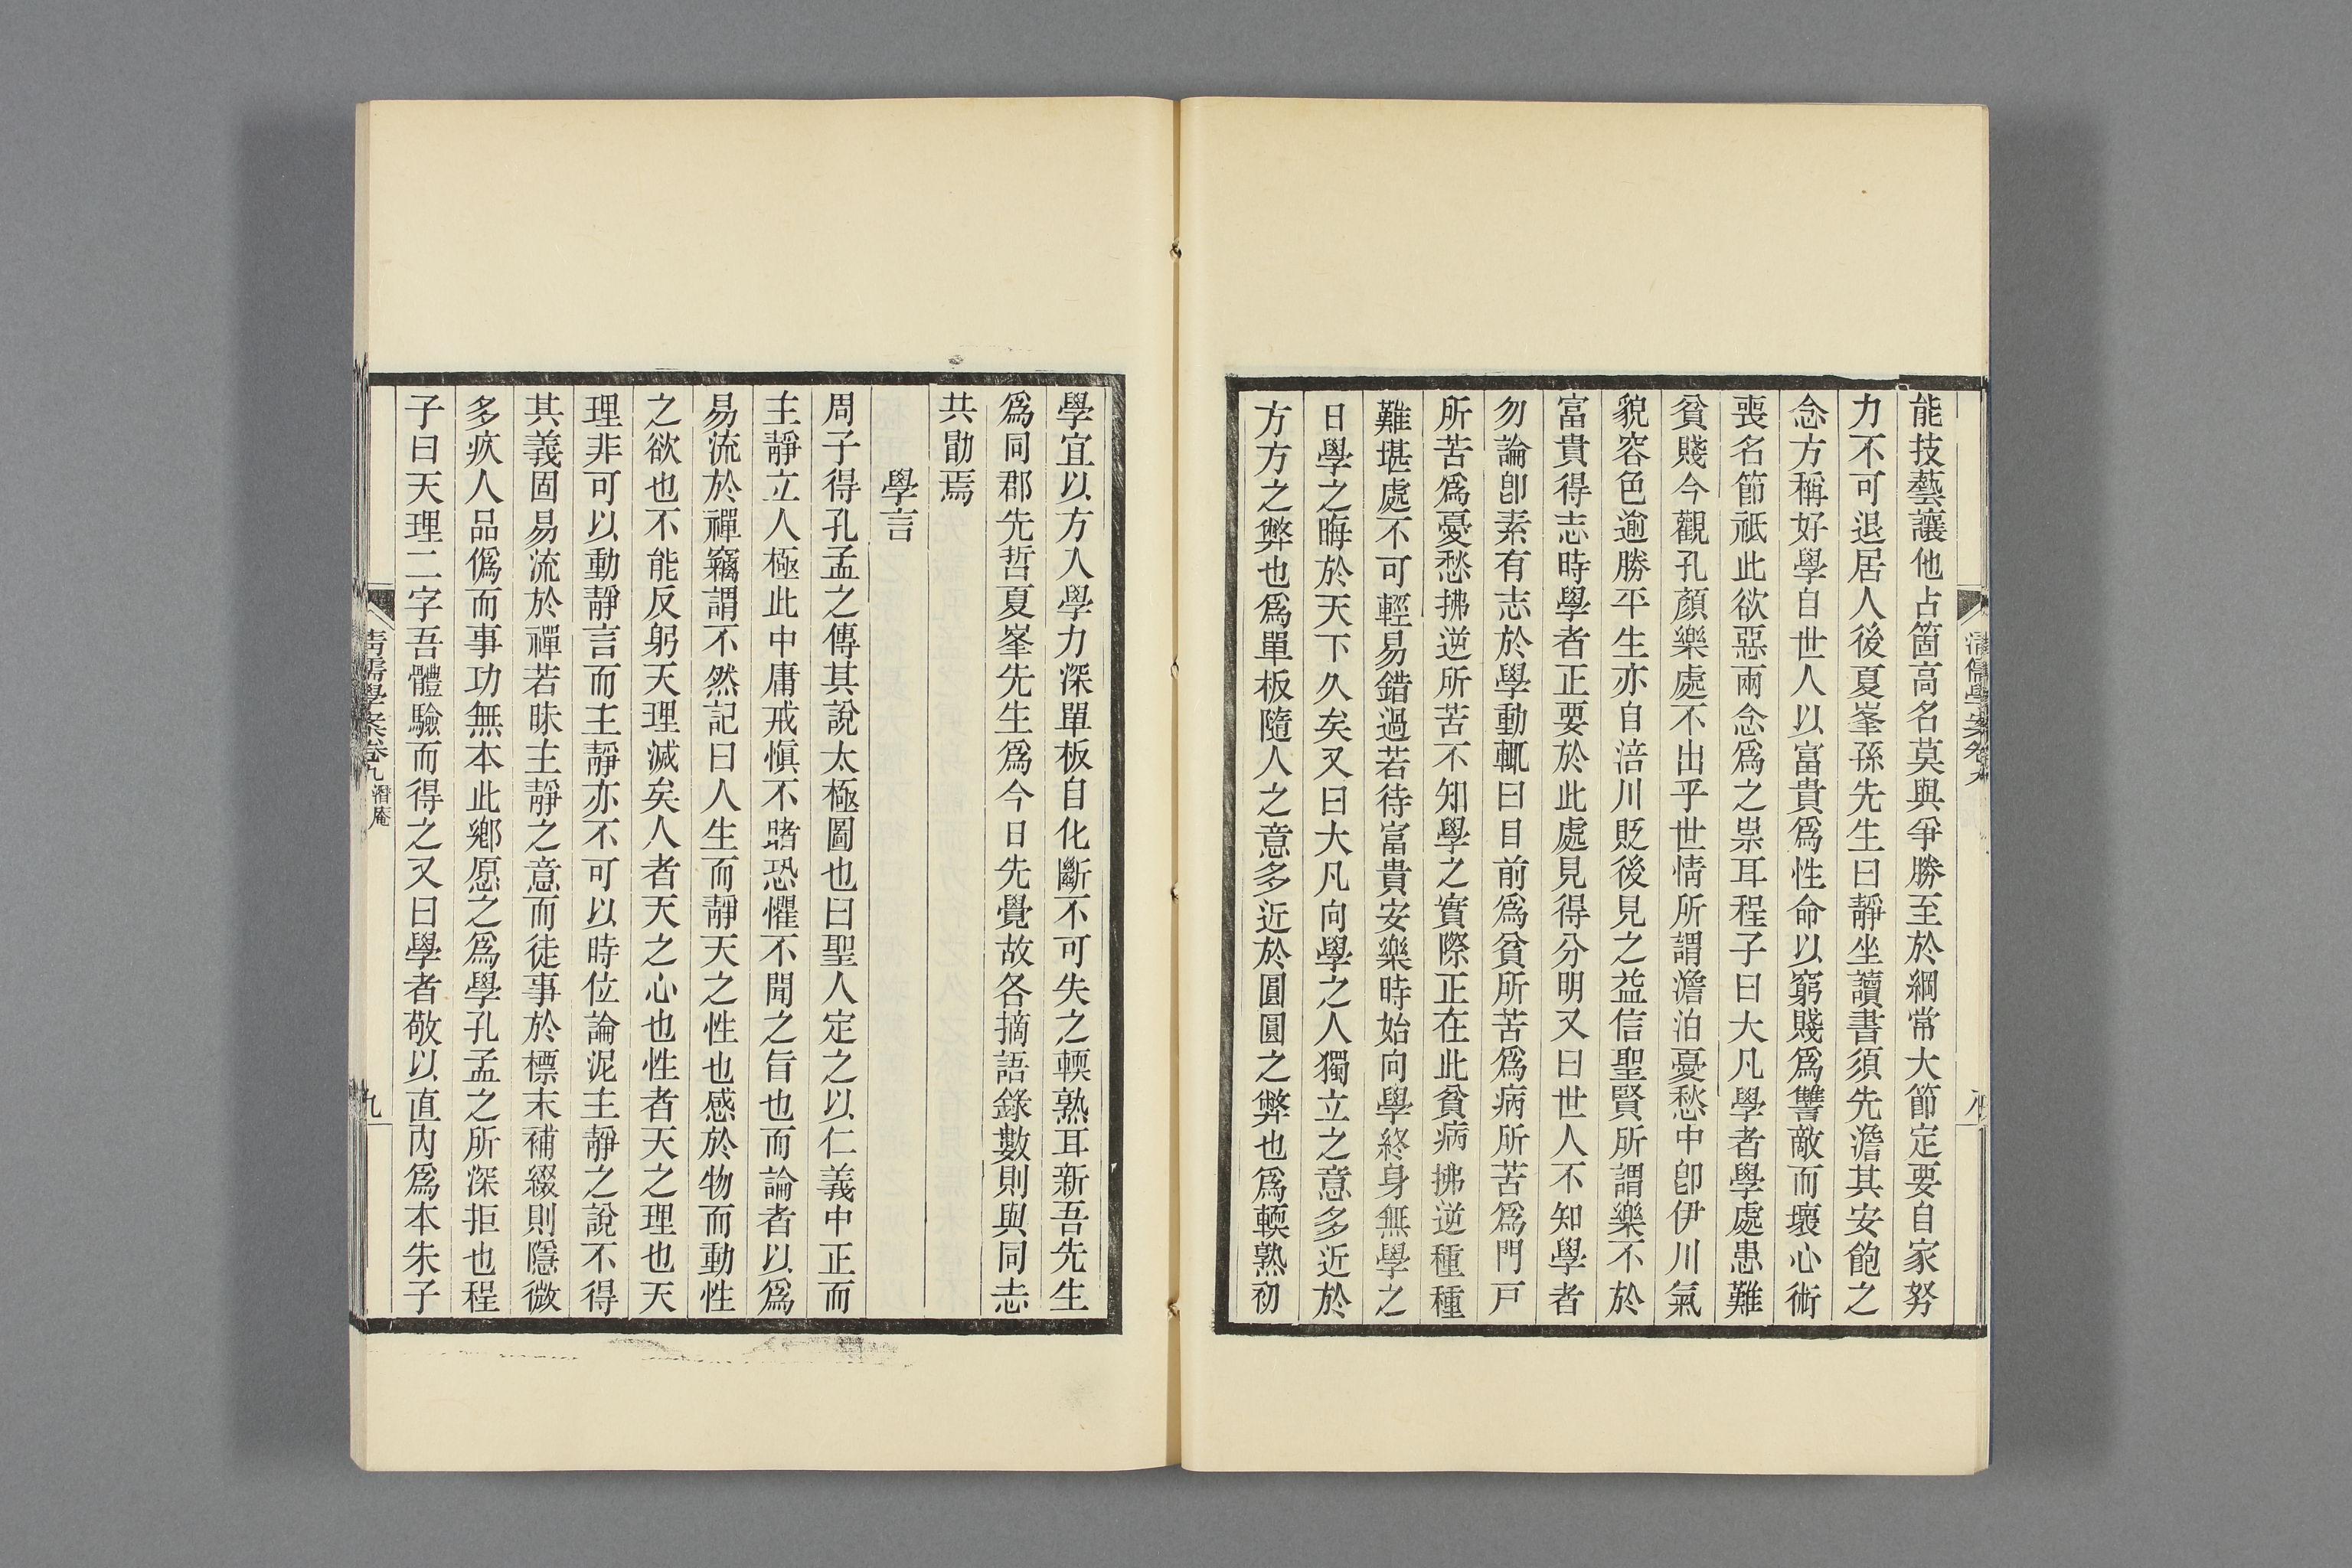 能技藝讓他占箇高名莫與爭勝至於綱常大節定要自家努
力不可退居人後夏峯孫先生曰靜坐讀書須先澹其安飽之
念方稱好學自世人以富貴爲性命以窮賤爲讐敵而壞心術
喪名節祇此欲惡兩念爲之祟耳程子曰大凡學者學處患難
貧賤今觀孔顏樂處不出乎世情所謂澹泊憂愁中卽伊川氣
貌容色逾勝平生亦自涪川貶後見之益信聖賢所謂樂不於
富貴得志時學者正要於此處見得分明又曰世人不知學者
勿論卽素有志於學動輒曰目前爲貧所苦爲病所苦爲門戸
所苦爲憂愁拂逆所苦不知學之實際正在此貧病拂逆種種
難堪處不可輕易錯過若待富貴安樂時始向學終身無學之
日學之晦於天下久矣又曰大凡向學之人獨立之意多近於
方方之弊也爲單板隨人之意多近於圓圓之弊也爲輭熟初
清儒學案卷九
八
學宜以方入學力深單板自化斷不可失之輭熟耳新吾先生
爲同郡先哲夏峯先生爲今日先覺故各摘語錄數則與同志
共勖焉
學言
周子得孔孟之傳其說太極圖也曰聖人定之以仁義中正而
主靜立人極此中庸戒愼不睹恐懼不聞之旨也而論者以爲
易流於禪竊謂不然記曰人生而靜天之性也感於物而動性
之欲也不能反躬天理滅矣人者天之心也性者天之理也天
理非可以動靜言而主靜亦不可以時位論泥主靜之說不得
其義固易流於禪若昧主靜之意而徒事於標末補綴則隱微
多疚人品僞而事功無本此鄕愿之爲學孔孟之所深拒也程
子曰天理二字吾體驗而得之又曰學者敬以直內爲本朱子
清儒學案卷九 潛庵
九